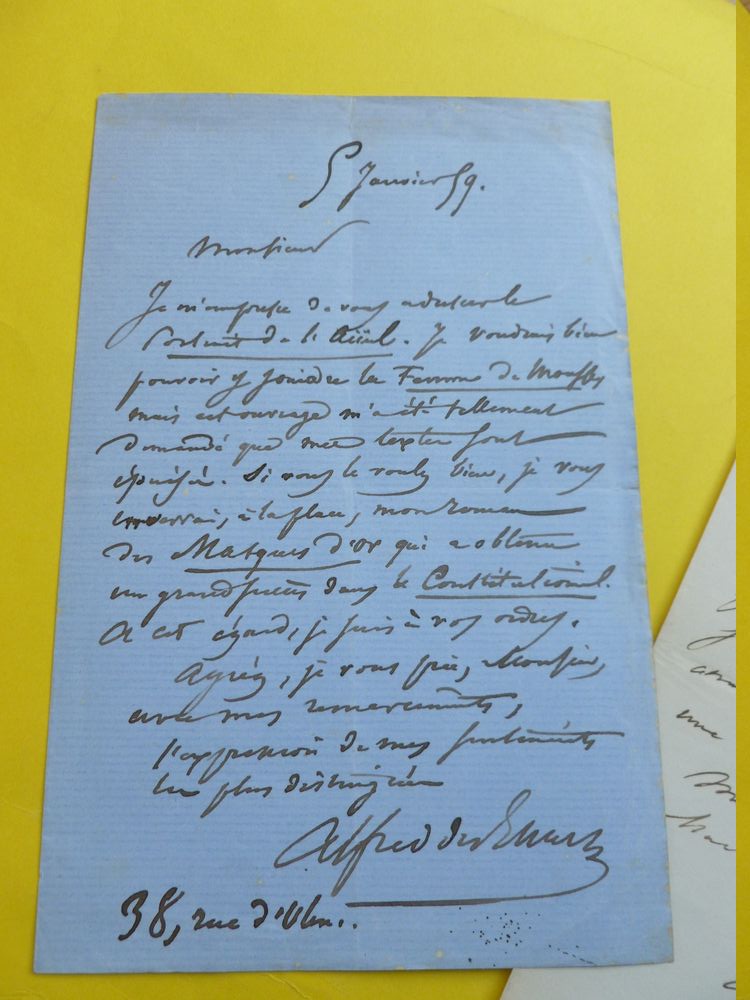 5 Janvier 59.
Monsieur
Je m'empresse de vous adresser le
Portrait de l'Aïeul. Je voudrais bien
pouvoir y joindre la Femme de
mais cet ouvrage m'a été tellement
demandé que mes textes sont
épuisés. Si vous le voulez bien, je vous
enverrai, à la place, mon roman
des Masques d'Or qui a obtenu
un grand succès dans le Constitutionnel.
A cet égard, je suis à vos ordres.
Agréez, je vous prie, Monsieur,
avec mes remerciements,
l'expression de mes sentiments
les plus distingués
Alfred des Essarts
38, rue d'Ulm.